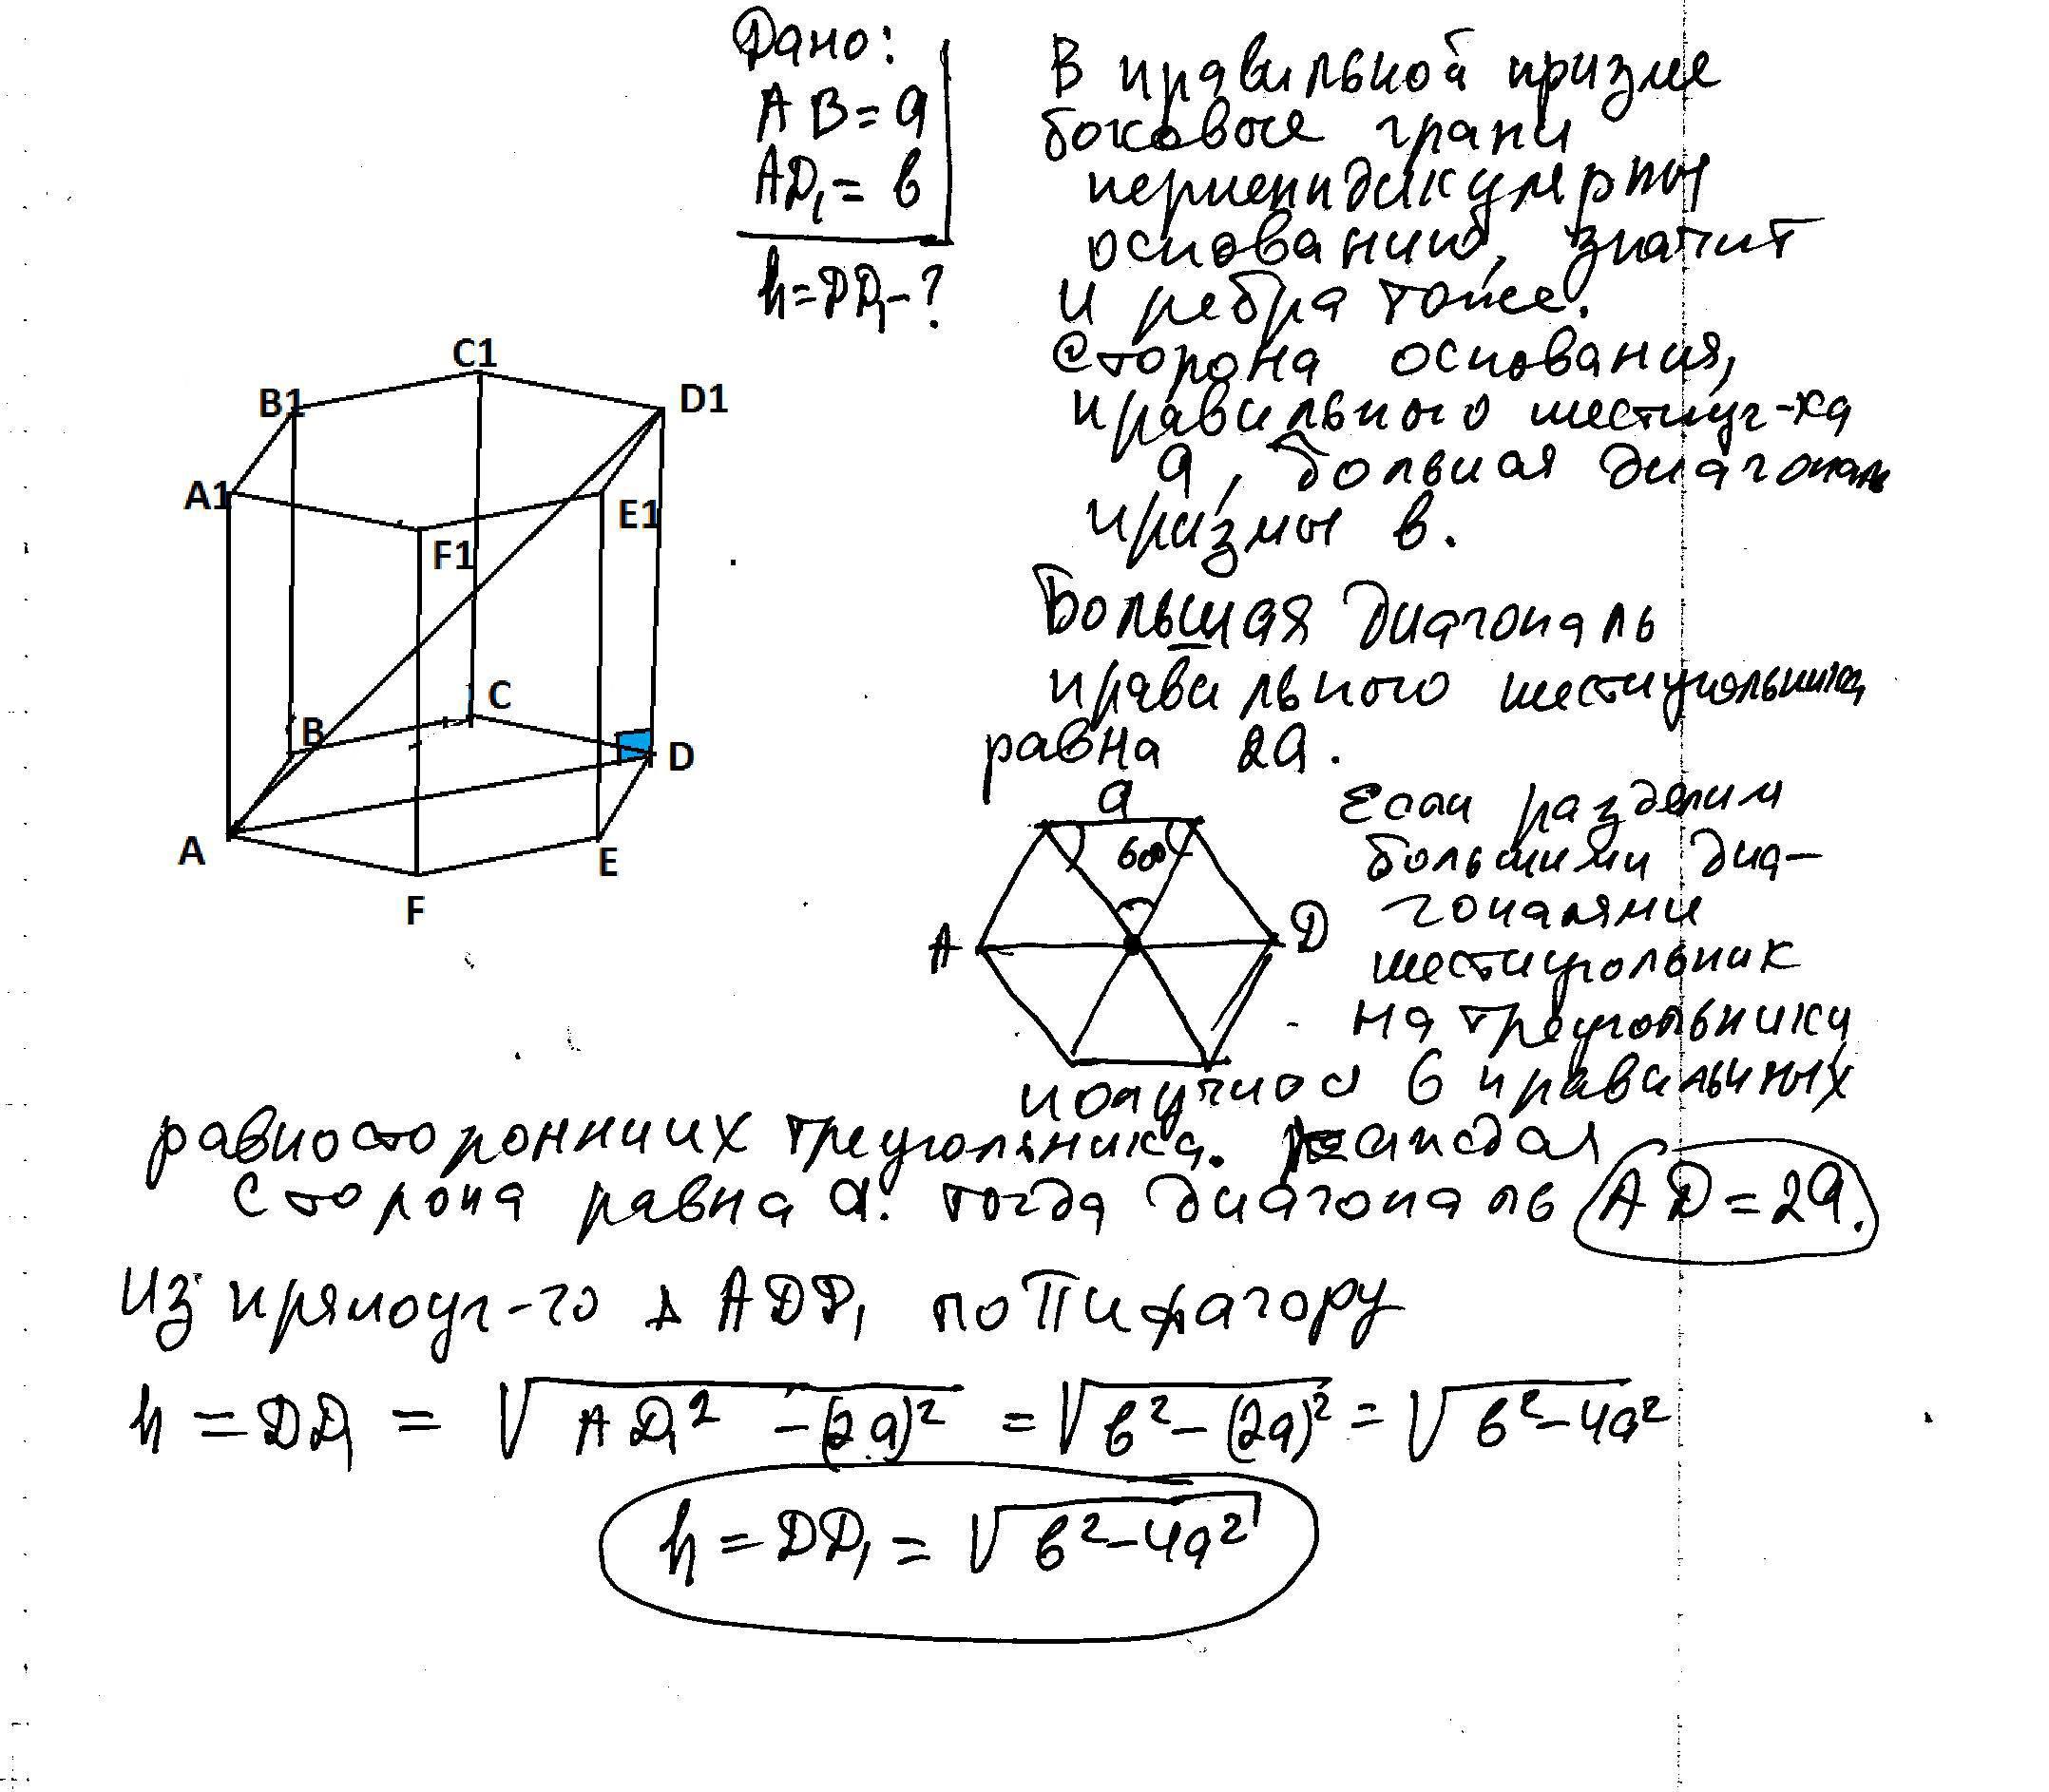 Дано:
AB = a
AD₁ = в
h = DD₁ - ?
В правильной призме
боковые грани
перпендикулярны
основанию, значит
и ребра тоже.
Сторона основания,
правильного шестиуг-ка
a, большая диагональ
призмы в.
Большая диагональ
правильного шестиугольника
равна 2a.
C1
B1
D1
A1
E1
F1
C
B
D
A
E
F
a
60°
A
D
Если разделим
большими диа-
гоналями
шестиугольник
на треугольники
получилось 6 правильных
равносторонних треугольника. каждая
сторона равна a. тогда диагональ AD = 2a.
Из прямоуг-го Δ ADD₁ по Пифагору
h = DD₁ = √(AD₁² - (2a)²) = √(в² - (2a)²) = √(в² - 4a²)
h = DD₁ = √(в² - 4a²)